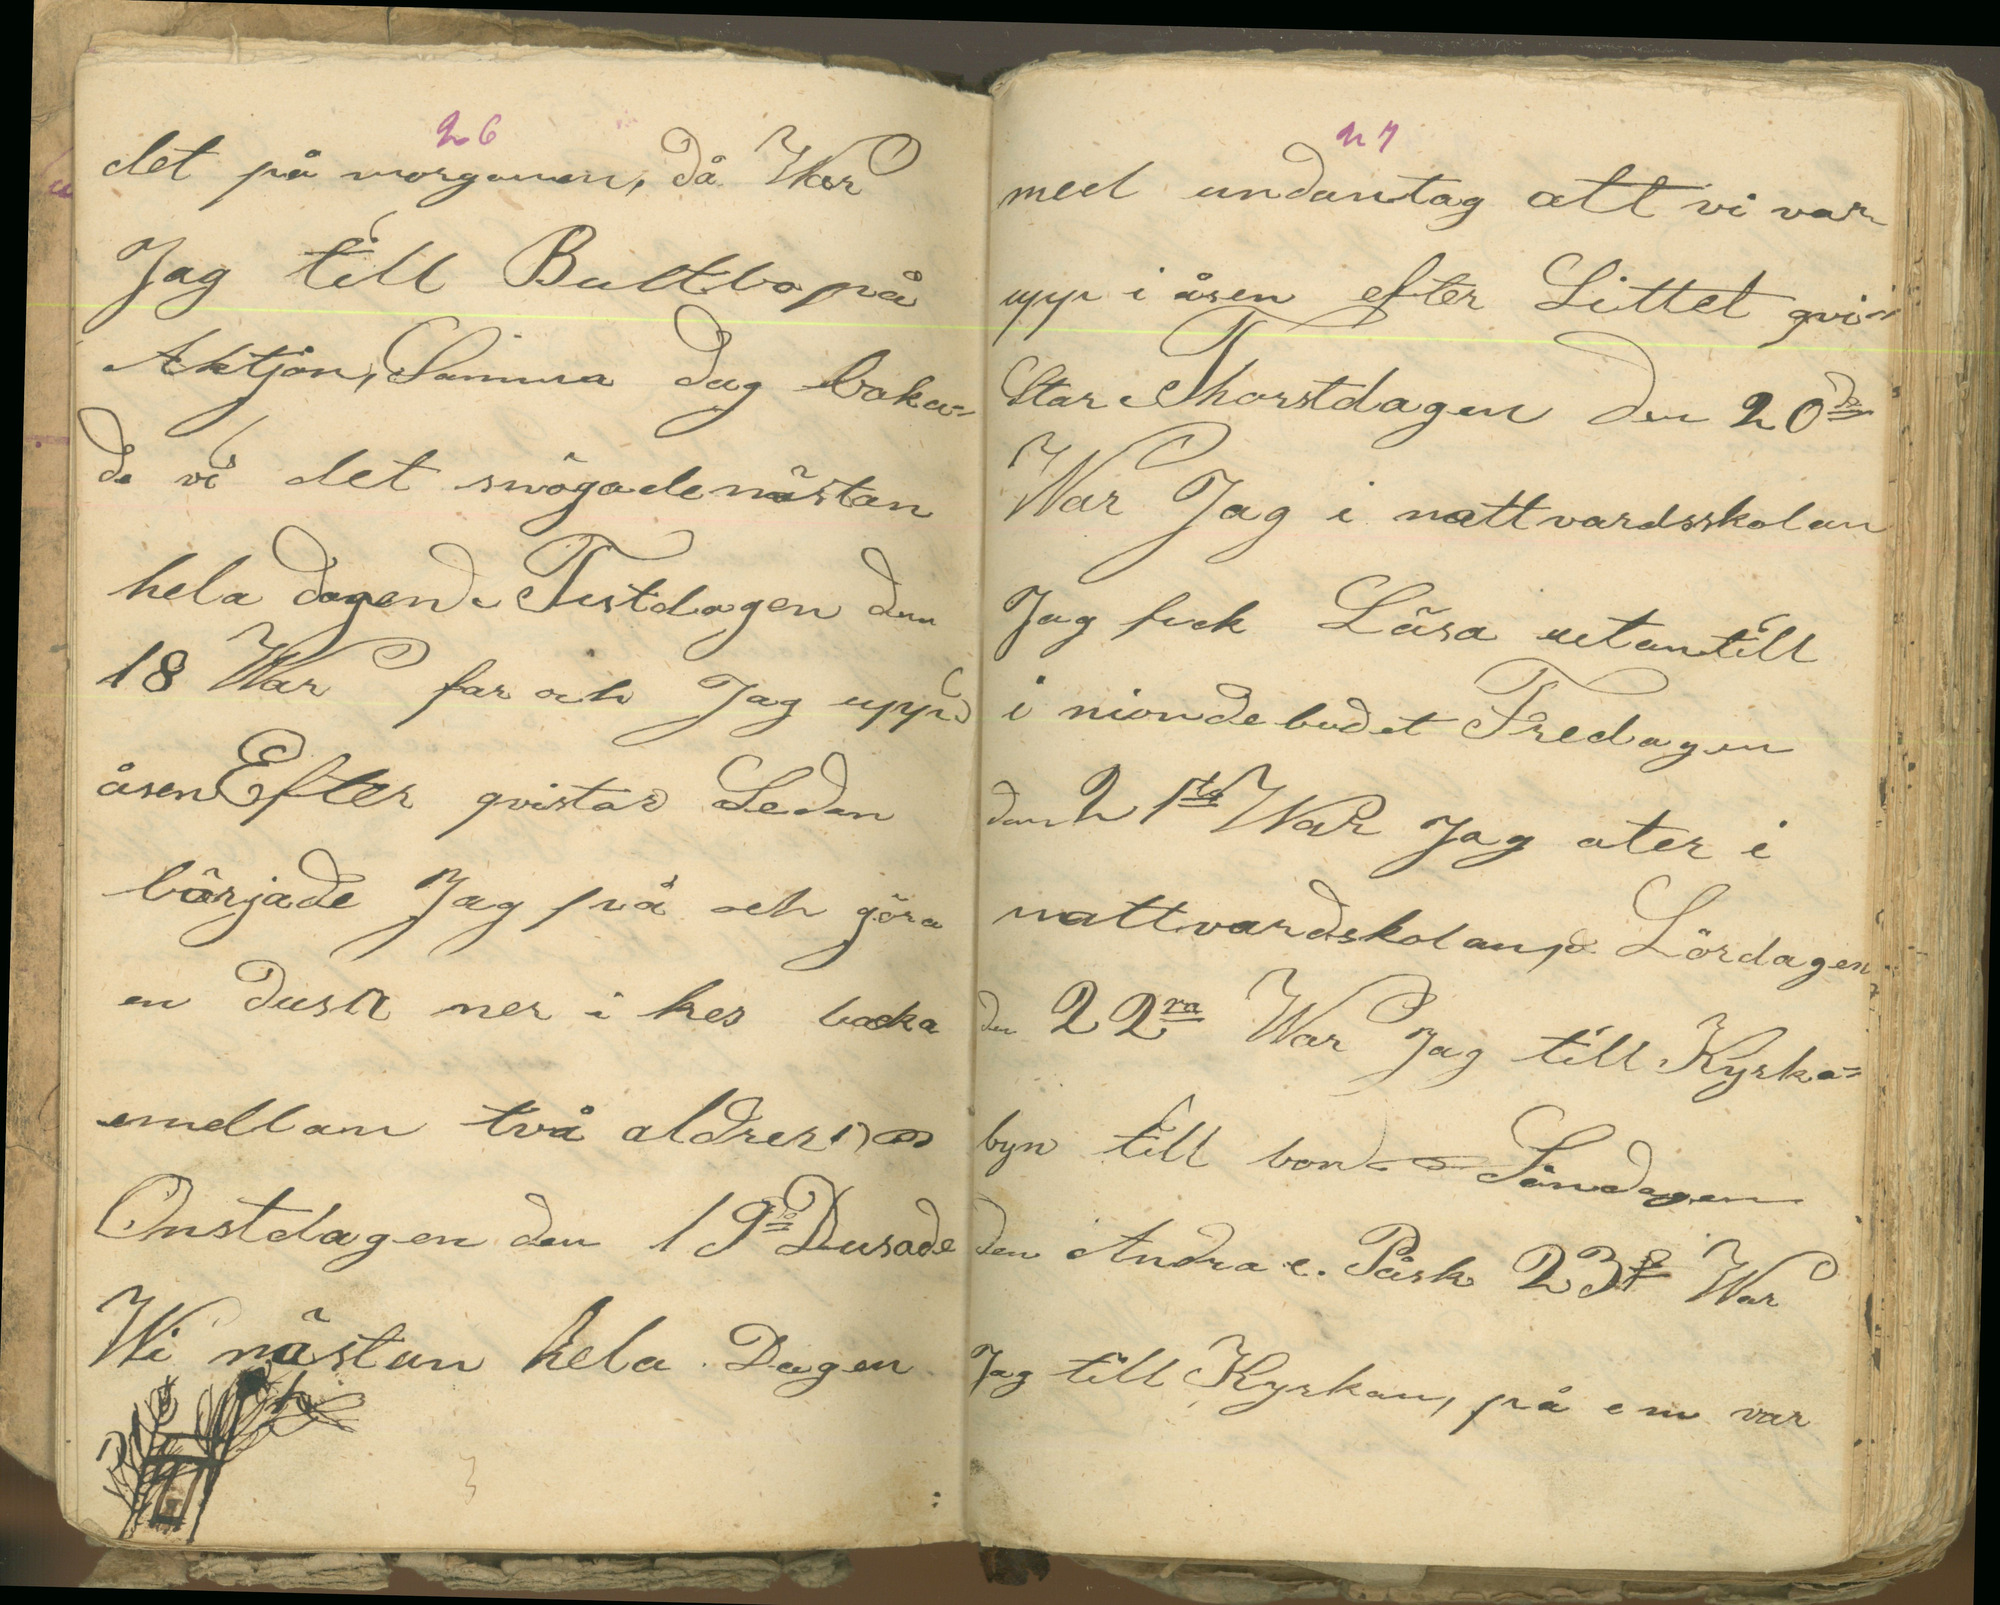 26
det på morgonen, då War
Jag till Bultbo på
Aktjon, Samma dag baka=
de vi det snögade nästan
hela dagen Tistdagen den
18 War far och Jag upp i
åsen Efter qvistar Sedan
började Jag på och göra
en dusk ner i hes backa
emellan två aldrer
Onstdagen den 19de Dusade
Wi nästan hela Dagen
27
med undantag att vi var
upp i åsen efter Littet qvi=
star Thorstdagen den 20de
War Jag i nattvardsskolan
Jag fick Läsa utantill
i nionde budet Fredagen
den 21sta War Jag ater i
nattvardskolan, Lördagen
den 22ra War Jag till Kyrka=
byn till bon Söndagen
den Andra e. Påsk 23 War
Jag till Kyrkan, på em var